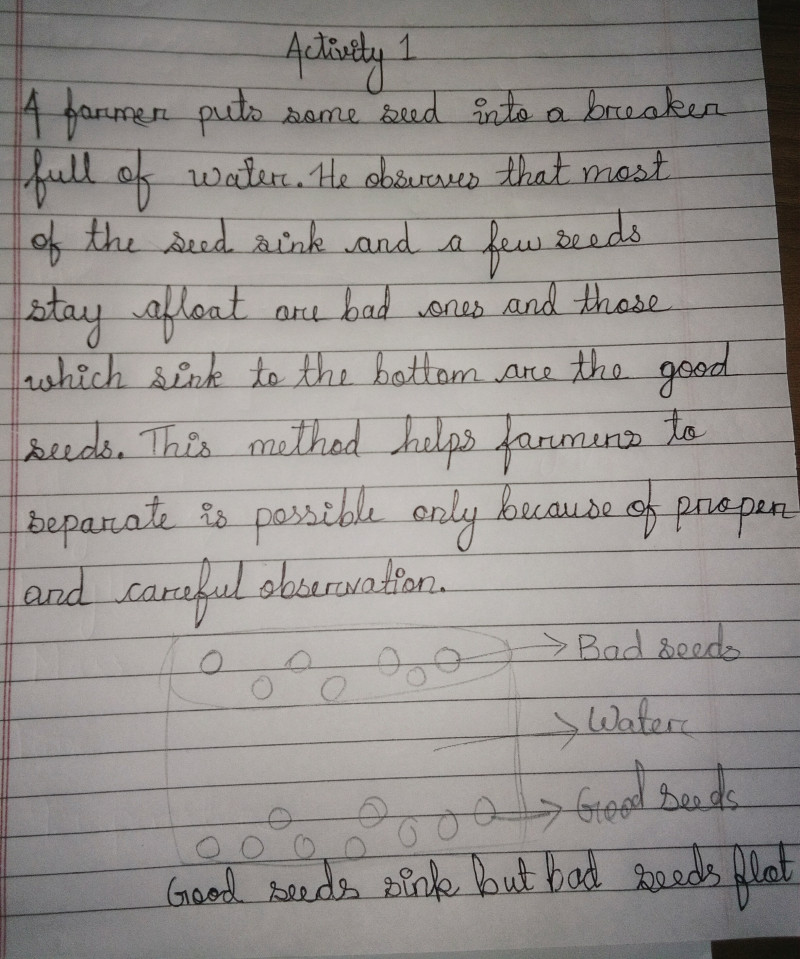 Activity 1
A farmer puts some seed into a breaker
full of water. He observes that most
of the seed sink and a few seeds
stay afloat are bad ones and those
which sink to the bottom are the good
seeds. This method helps farmers to
separate is possible only because of proper
and careful observation.
Bad seeds
Water
Good seeds
Good seeds sink but bad seeds flot